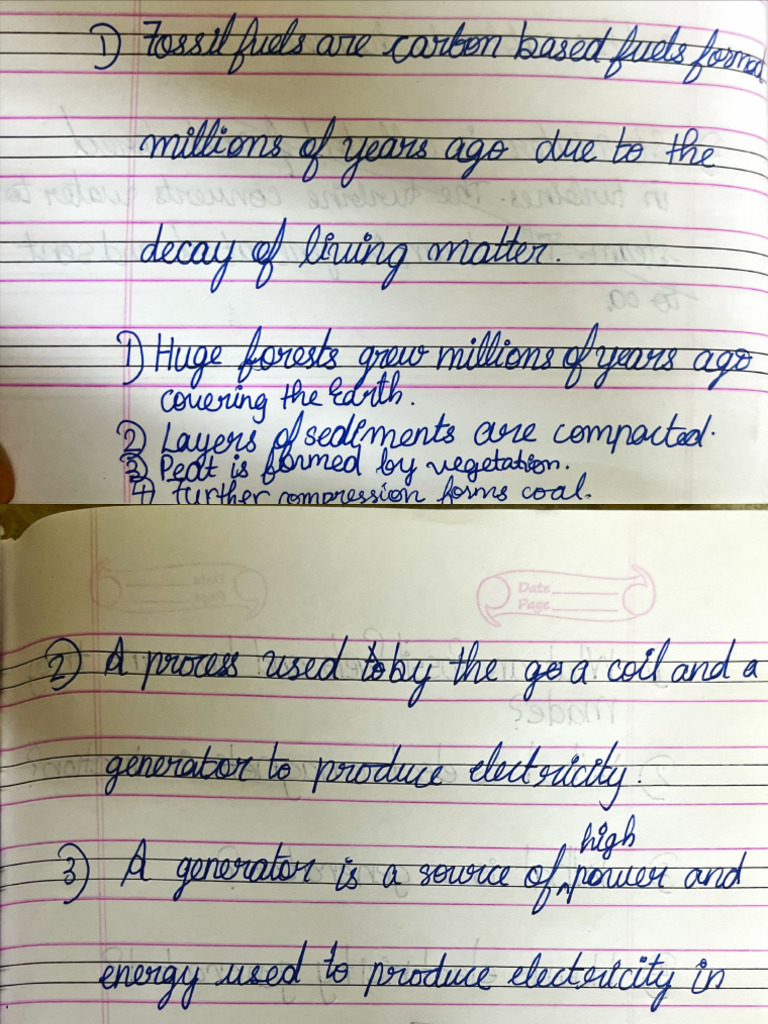 1) Fossil fuels are carbon based fuels formed
millions of years ago due to the
decay of living matter.
1) Huge forests grew millions of years ago
covering the Earth.
2) Layers of sediments are compacted.
3) Peat is formed by vegetation.
4) further compression forms coal.
Date
Page
2) A process used by the a coil and a
generator to produce electricity.
3) A generator is a source of high power and
energy used to produce electricity in